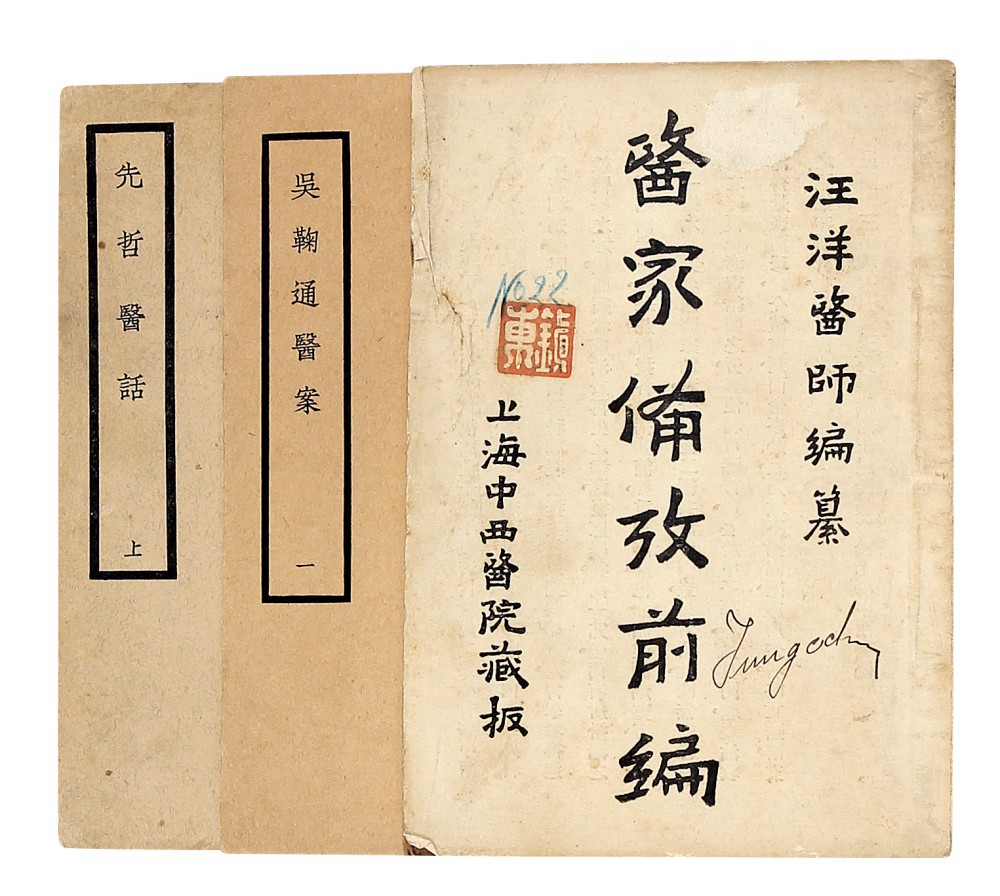 汪洋醫師編纂
醫家備攷前編
No 22
鎮東
上海中西醫院藏板
吳鞠通醫案
一
先哲醫話
上